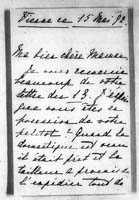 Vienne ce 15 Mai 92
Ma bien chère
Je vous remercie
beaucoup de votre
lettre du 13. J'espère
que vous êtes en
possession de votre
paletot? Quand la
domestique est venu
il était prêt et la
tailleuse a promis de
l'expédier tout de